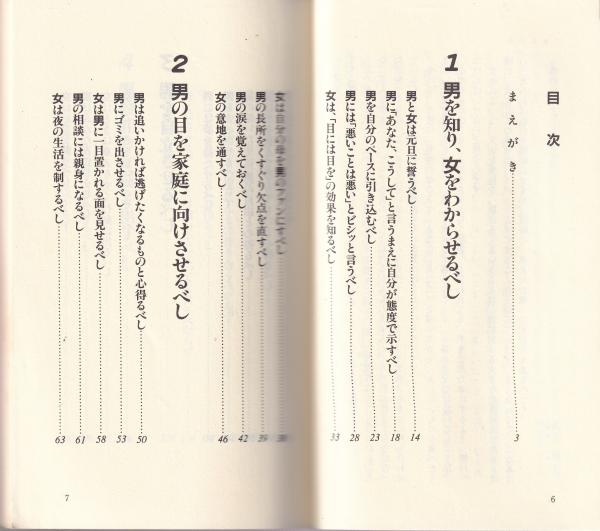 目次
まえがき 3
1 男を知り、女をわからせるべし
男と女は元旦に誓うべし 14
男に「あなた、こうして」と言うまえに自分が態度で示すべし 18
男を自分のペースに引き込むべし 23
男には「悪いことは悪い」とピシッと言うべし 28
女は、「目には目を」の効果を知るべし 33
6
女は自分の母を男のファンにすべし 36
男の長所をくすぐり欠点を直すべし 39
男の涙を覚えておくべし 42
女の意地を通すべし 46
2 男の目を家庭に向けさせるべし
男は追いかければ逃げたくなるものと心得るべし 50
男にゴミを出させるべし 53
女は男に一目置かれる面を見せるべし 58
男の相談には親身になるべし 61
女は夜の生活を制するべし 63
7